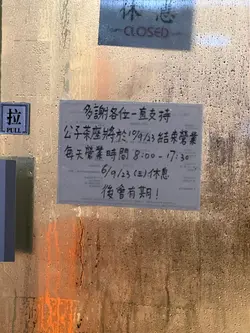 休息
CLOSED
拉
PULL
多謝各位一直支持
公子茶座將於10/9/23結束營業
每天營業時間 8:00-17:30
6/9/23 (三) 休息
後會有期！